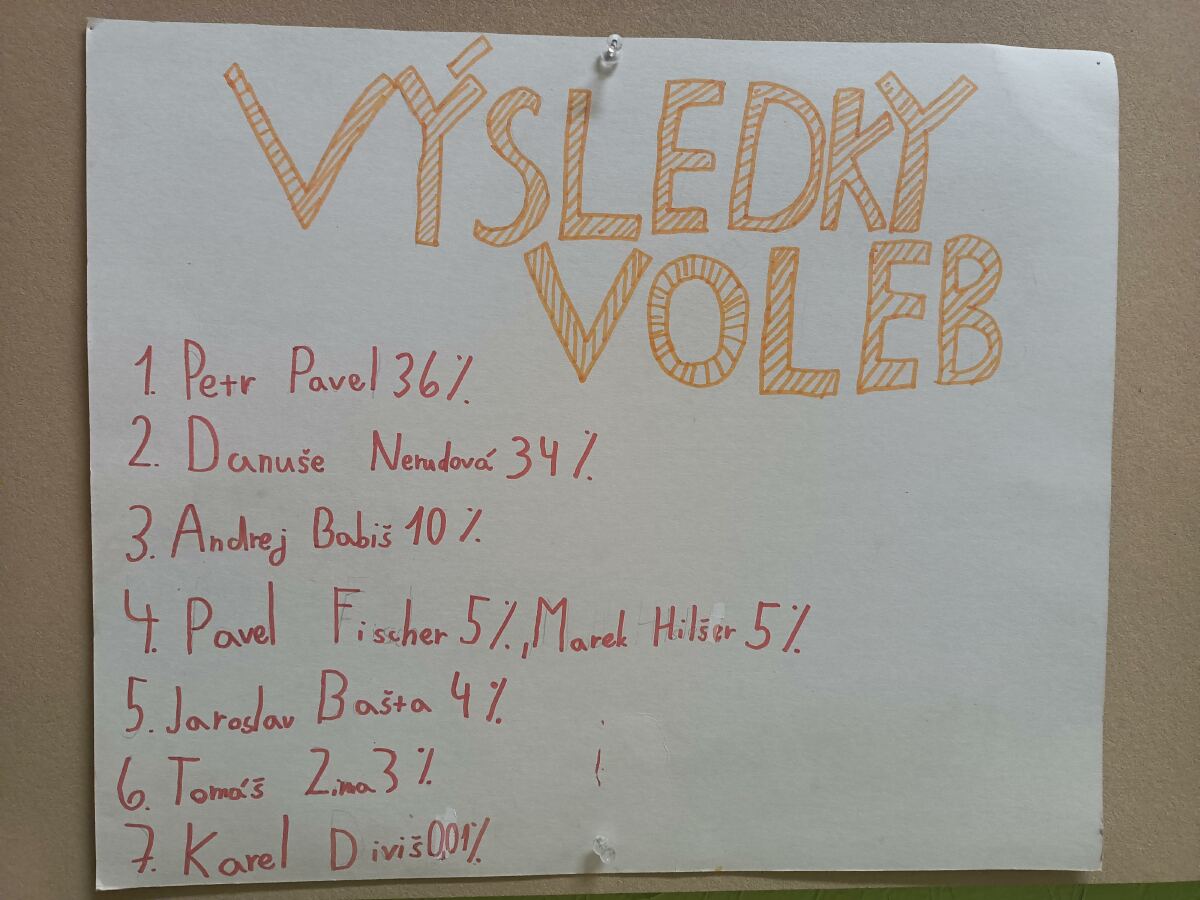 VÝSLEDKY
VOLEB
1. Petr Pavel 36%
2. Danuše Nerudová 34%
3. Andrej Babiš 10%
4. Pavel Fischer 5%, Marek Hilšer 5%
5. Jaroslav Bašta 4%
6. Tomáš Zima 3%
7. Karel Diviš 0,01%